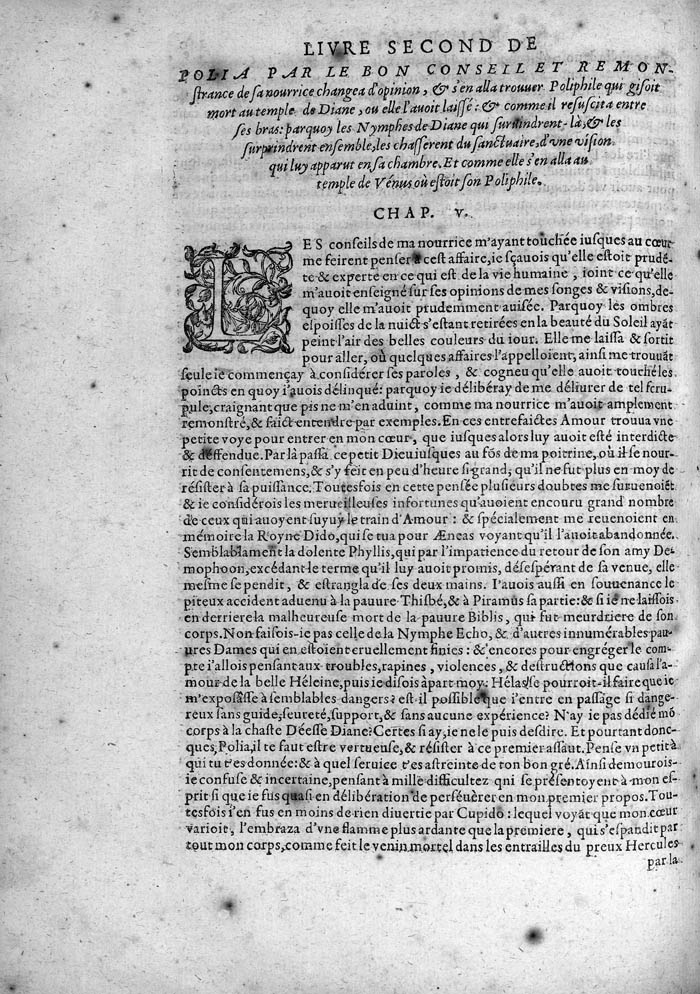 LIVRE SECOND DE
POLIA PAR LE BON CONSEIL ET REMON-
ſtrance de ſa nourrice changea d'opinion, & s'en alla trouuer Poliphile qui giſoit
mort au temple de Diane, ou elle l'auoit laiſſé: & comme il reſuſcita entre
ſes bras: parquoy les Nymphes de Diane qui ſuruindrent là, & les
ſurprindrent enſemble, les chaſſerent du ſanctuaire, d'vne viſion
qui luy apparut en ſa chambre. Et comme elle s'en alla au
temple de Vénus où eſtoit ſon Poliphile.
CHAP. V.
LES conſeils de ma nourrice m'ayant touchée iuſques au cœur
me feirent penſer à ceſt affaire, ie ſçauois qu'elle eſtoit prudé-
te & experte en ce qui eſt de la vie humaine, ioint ce qu'elle
m'auoit enſeigné ſur ſes opinions de mes ſonges & viſions, de-
quoy elle m'auoit prudemment auiſée. Parquoy les ombres
eſpoiſſes de la nuict s'eſtant retirées en la beauté du Soleil ayāt
peint l'air des belles couleurs du iour. Elle me laiſſa & ſortit
pour aller, où quelques affaires l'appelloient, ainſi me trouuāt
ſeule ie commençay à conſidérer ſes paroles, & cogneu qu'elle auoit touché les
poincts en quoy i'auois délinqué: parquoy ie délibéray de me déliurer de tel ſcru-
pule, craignant que pis ne m'en aduint, comme ma nourrice m'auoit amplement
remonſtré, & faict entendre par exemples. En ces entrefaictes Amour trouua vne
petite voye pour entrer en mon cœur, que iuſques alors luy auoit eſté interdicte
& deffendue. Par là paſſa ce petit Dieu iuſques au fōs de ma poitrine, où il ſe nour-
rit de conſentemens, & s'y feit en peu d'heure ſi grand, qu'il ne fut plus en moy de
réſiſter à ſa puiſſance. Toutesfois en cette penſée pluſieurs doubtes me ſuruenoiēt
& ie conſidérois les merueilleuſes infortunes qu'auoient encouru grand nombre
de ceux qui auoyent ſuyuy le train d'Amour: & ſpécialement me reuenoient en
mémoire la Royne Dido, qui ſe tua pour Æneas voyant qu'il l'auoit abandonnée.
Semblablament la dolente Phyllis, qui par l'impatience du retour de ſon amy De-
mophoon, excédant le terme qu'il luy auoit promis, déſeſpérant de ſa venue, elle
meſme ſe pendit, & eſtrangla de ſes deux mains. I'auois auſſi en ſouuenance le
piteux accident aduenu à la pauure Thiſbé, & à Piramus ſa partie: & ſi ie ne laiſſois
en derriere la malheureuſe mort de la pauure Biblis, qui fut meurdriere de ſon
corps. Non faiſois-ie pas celle de la Nymphe Echo, & d'autres innumérables pau-
ures Dames qui en eſtoient cruellement finies: & encores pour engréger le com-
pte i'allois penſant aux troubles, rapines, violences, & deſtructions que cauſa l'a-
mour de la belle Héleine, puis ie diſois à part moy: Hélas! ſe pourroit-il faire que ie
m'expoſaſſe à ſemblables dangers? eſt il poſſible que i'entre en paſſage ſi dange-
reux ſans guide, ſeureté, ſupport, & ſans aucune expérience? N'ay ie pas dédié mō
corps à la chaſte Déeſſe Diane? Certes ſi ay, ie ne le puis deſdire. Et pourtant donc-
ques, Polia, il te faut eſtre vertueuſe, & réſiſter à ce premier aſſaut. Penſe vn petit à
qui tu t'es donnée: & à quel ſeruice t'es aſtreinte de ton bon gré. Ainſi demourois-
ie confuſe & incertaine, penſant à mille difficultez qni ſe préſentoyent à mon eſ-
prit ſi que ie fus quaſi en délibération de perſéuèrer en mon premier propos. Tou-
tesfois i'en fus en moins de rien diuertie par Cupido: lequel voyāt que mon cœur
varioit, l'embraza d'vne flamme plus ardante que la premiere, qui s'eſpandit par
tout mon corps, comme feit le venin mortel dans les entrailles du preux Hercules
par la